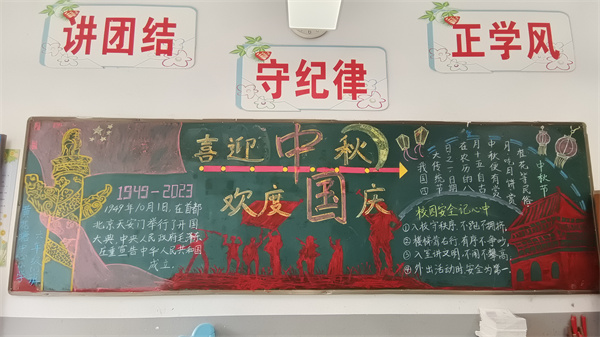 讲团结
守纪律
正学风
喜迎中秋
欢度国庆
1949-2023
1949年10月1日,在首都
北京天安门举行了开国
大典,中央人民政府毛泽东
庄重宣告中华人民共和国
成立.
中秋节
桂花等民俗
月吃月饼赏
中秋便有赏
月十五自古
在农历的八
日之一日期
大传统节
我国四
校园安全记心中
①入校守秩序,不跑不拥挤,
②楼梯靠右行,有序不争吵,
③入室讲文明,不闹不攀高,
④外出活动时,安全为第一.